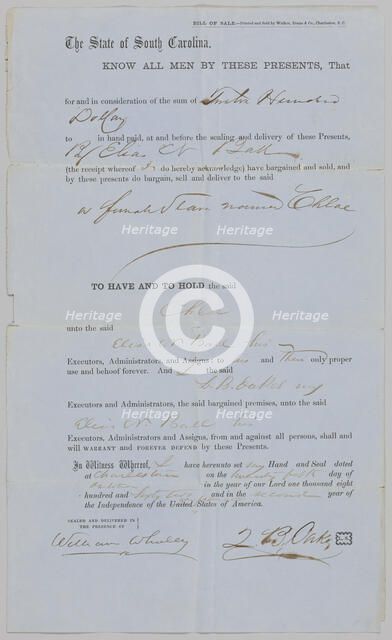 BILL OF SALE.—Printed and Sold by Walker, Evans & Co., Charleston, S. C.
The State of South Carolina.
KNOW ALL MEN BY THESE PRESENTS, That
for and in consideration of the sum of Twelve Hundred
Dollars
to in hand paid, at and before the sealing and delivery of these Presents,
By Elias N Ball
(the receipt whereof I do hereby acknowledge) have bargained and sold, and
by these presents do bargain, sell and deliver to the said
a female Slave named Chloe
Heritage
Heritage
TO HAVE AND TO HOLD the said
Chloe
unto the said
Elias N Ball his
Executors, Administrators, and Assigns: to his and their only proper
use and behoof forever. And I the said
L B Oakes my
Executors and Administrators, the said bargained premises, unto the said
Elias N Ball his
Executors, Administrators and Assigns, from and against all persons, shall and
will WARRANT and FOREVER DEFEND by these Presents.
In Witness Whereof, I have hereunto set my Hand and Seal dated
at Charleston on the day of
in the year of our Lord one thousand eight
hundred and fifty two and in the second year of
the Independence of the United States of America.
SEALED AND DELIVERED IN
THE PRESENCE OF
William Whaley
Z B Oakes